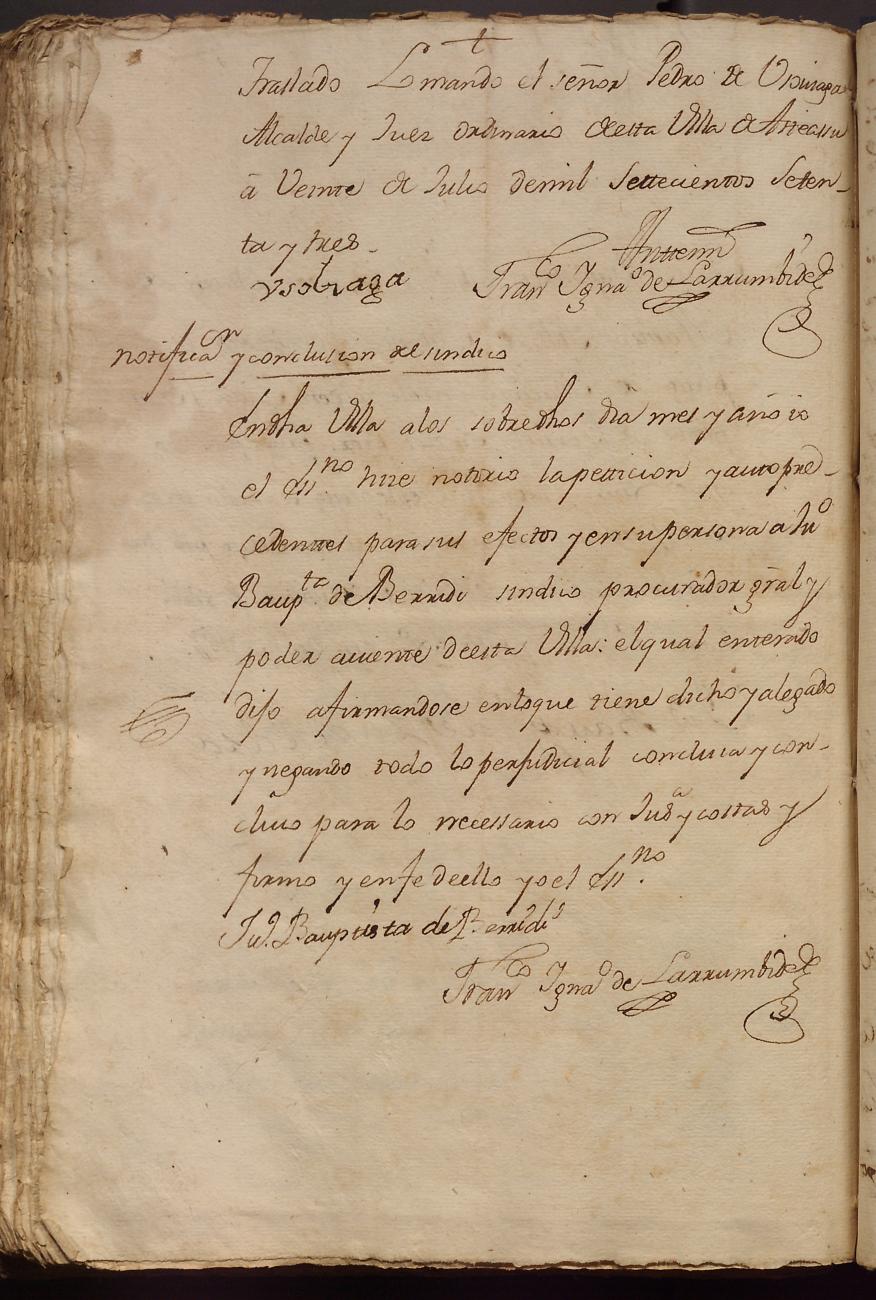 Traslado Lo mando el señor Pedro de Usouiaga
Alcalde y Juez ordinario de esta Villa de Asteasu
â Veinte de Julio de mil settecientos seten-
ta y tres-
Ysobiaga Antemi
Fran.co Ygna.o de Larrumbide
notificaon y conclusion de sindico
En dha Villa a los sobredhos dia mes y año io
el Ss.no hize notorio la petticion y auto pre-
cedenttes para sus efectos y en su persona a Ju.o
Baup.ta de Berridi sindico procurador gral y
poder aviente de esta Villa: el qual enterado
dijo afirmandose en loque tiene dicho y alegado
y negando todo lo perjudicial concluia y con-
cluio para lo necessario con Jus.a y costas y
firmo y enfe de ello yo el Ss.no
Ju.o Bauptista de Berridi
Fran.co Ygna.o de Larrumbide